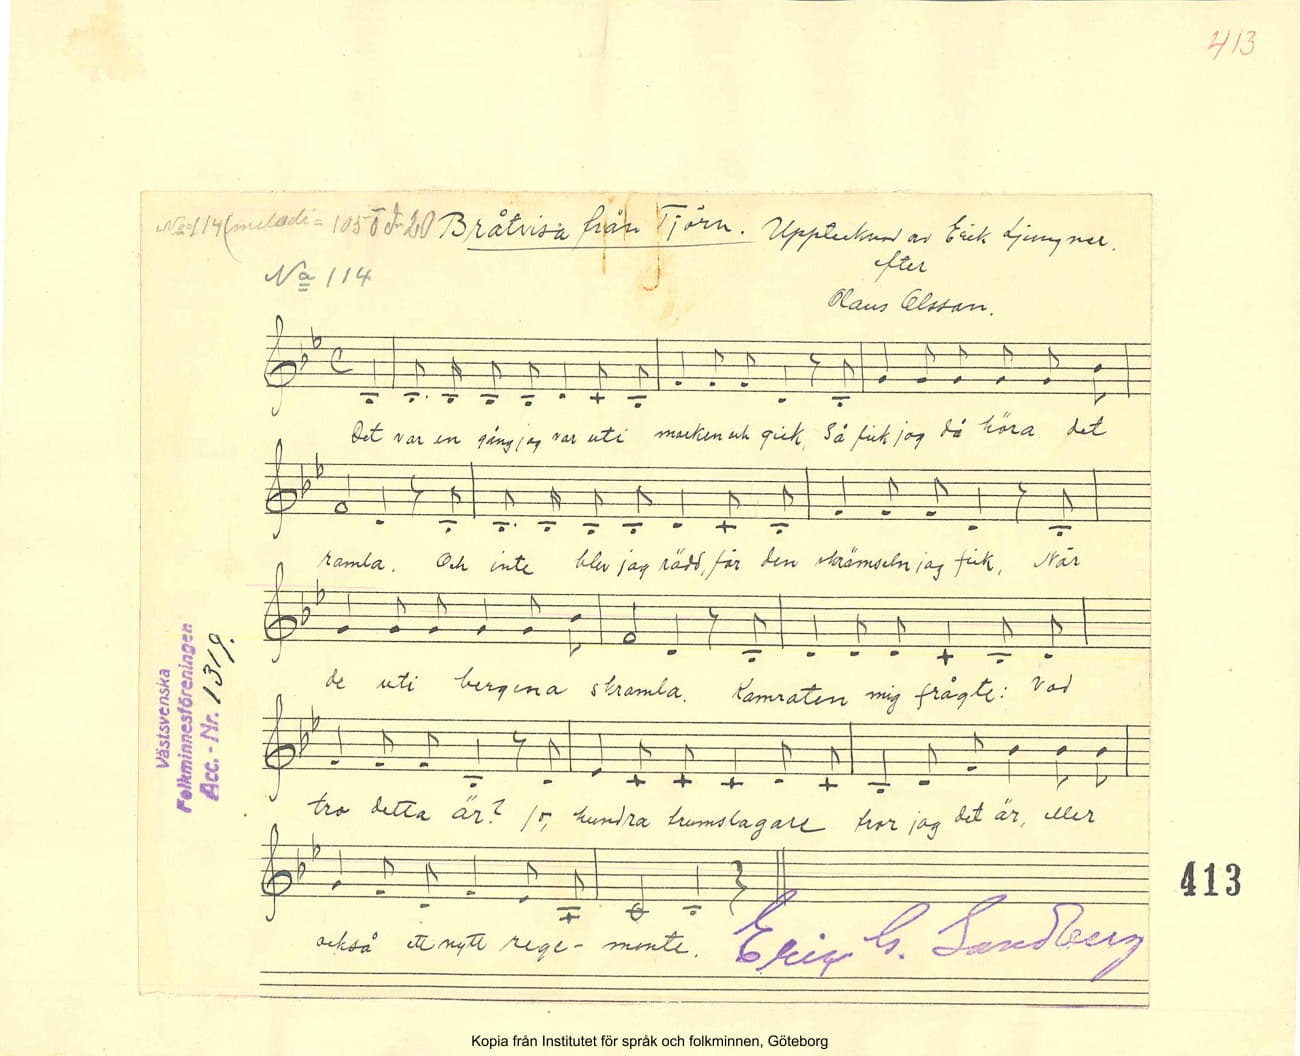 413
No 114 (melodi = 105
Bråtvisa från Tjörn. Upptecknad av Erik Ljungner.
efter
Olaus Olsson.
No 114
Det var en gång jag var uti marken och gick, Så fick jag då höra det
ramla. Och inte blev jag rädd, för den skrämseln jag fick, När
de uti bergena skramla. Kamraten mig frågte: Vad
tro detta är? Jo, hundra trumslagare tror jag det är, eller
också ett nytt rege- mente.
Eric G. Sandberg
Västsvenska
Folkminnesföreningen
Acc.-Nr. 1319.
413
Kopia från Institutet för språk och folkminnen, Göteborg